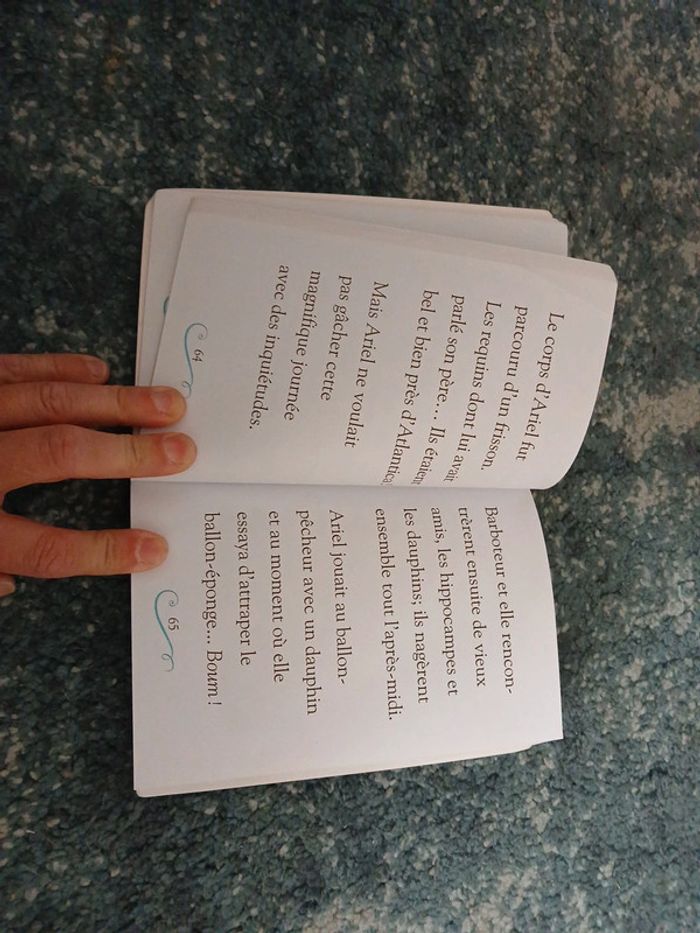 Le corps d'Ariel fut
parcouru d'un frisson.
Les requins dont lui avait
parlé son père... Ils étaient
bel et bien près d'Atlantica.
Mais Ariel ne voulait
pas gâcher cette
magnifique journée
avec des inquiétudes.
64
Barboteur et elle rencon-
trèrent ensuite de vieux
amis, les hippocampes et
les dauphins; ils nagèrent
ensemble tout l'après-midi.
Ariel jouait au ballon-
pêcheur avec un dauphin
et au moment où elle
essaya d'attraper le
ballon-éponge... Boum !
65